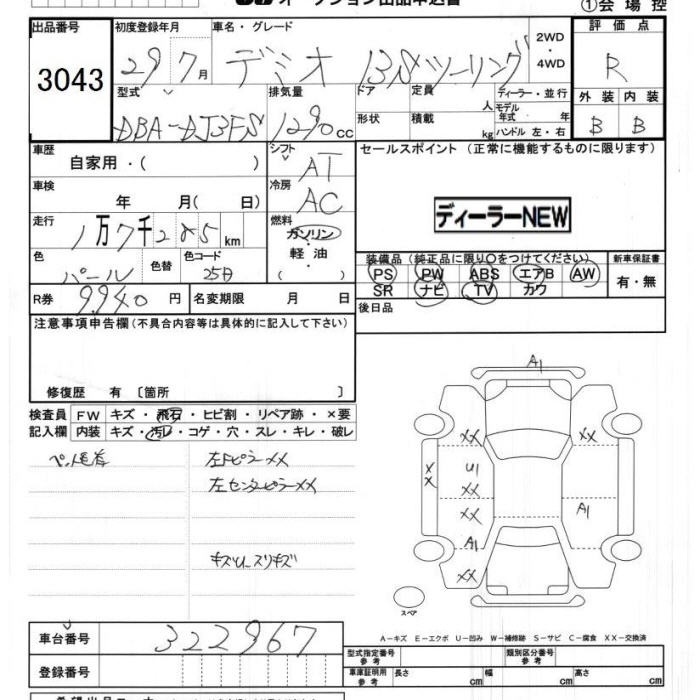 オークション出品申込書
①会場控
出品番号 初度登録年月 車名・グレード 評価点
3043 29 7月 デミオ 13Sツーリング 2WD・4WD R
型式 排気量 ドア 定員 ディーラー・並行 外装 内装
DBA-DJ3FS 1290cc 人 モデル年式 年 B B
形状 積載 kg ハンドル 左・右
車歴 シフト セールスポイント (正常に機能するものに限ります)
自家用・( ) AT
車検 冷房
年 月( 日) AC
ディーラーNEW
走行 燃料
1万7千285km ガソリン・軽油・( )
色 色替 色コード 装備品 (純正品に限り○をつけてください) 新車保証書
パール 25D PS PW ABS エアB AW 有・無
SR ナビ TV カワ
R券 9940円 名変期限 月 日 後日品
注意事項申告欄(不具合内容等は具体的に記入して下さい)
修復歴 有〔箇所 〕
検査員 FW キズ・飛石・ヒビ割・リペア跡・×要
記入欄 内装 キズ・汚レ・コゲ・穴・スレ・キレ・破レ
ペット毛有 左FピラーXX
左センターピラーXX
キズU スリキズ
A1
XX XX
XX U1
XX
XX A1
A1
XX
スペア
A-キズ E-エクボ U-凹み W-補修跡 S-サビ C-腐食 XX-交換済
車台番号 322967
型式指定番号 参考 類別区分番号 参考
登録番号
車庫証明用 参考 長さ cm 幅 cm 高さ cm